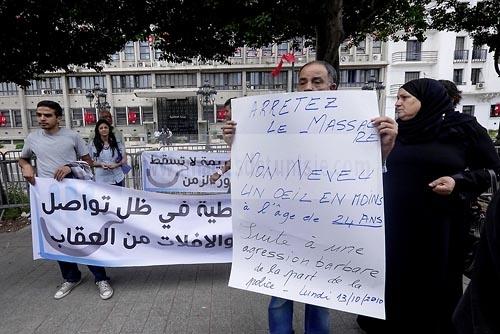 ARRETEZ
LE MASSACRE
MON NEVEU
UN OEIL EN MOINS
à l'âge de 24 ANS
Suite à une
agression barbare
de la part de la
police! Lundi 13/10/2010
لا تسقط
من
في ظل تواصل
والافلات من العقاب